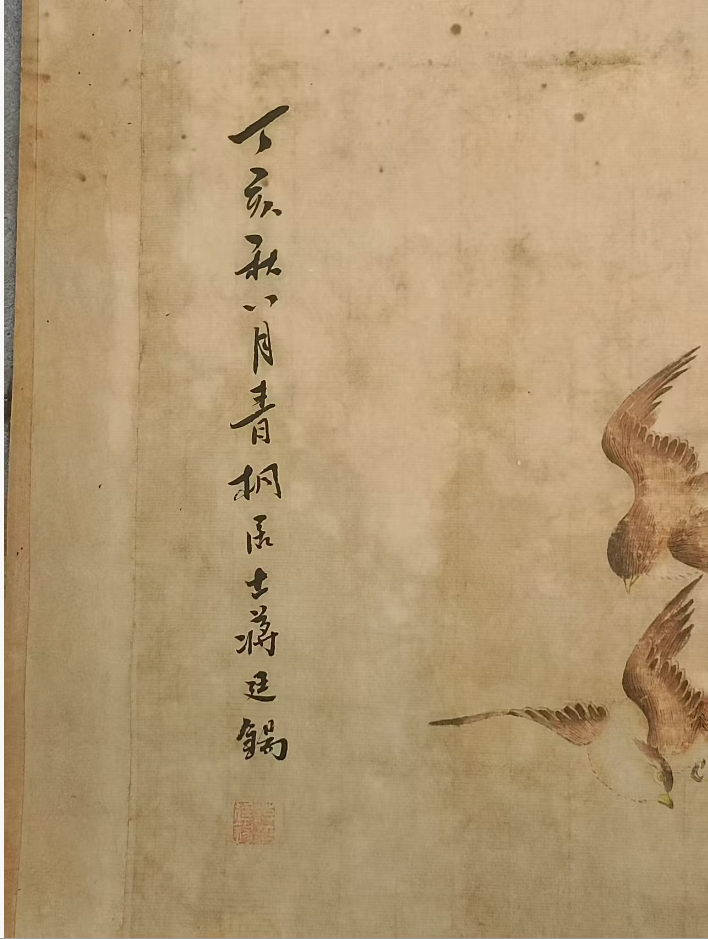 丁亥秋八月青桐居士蔣廷錫